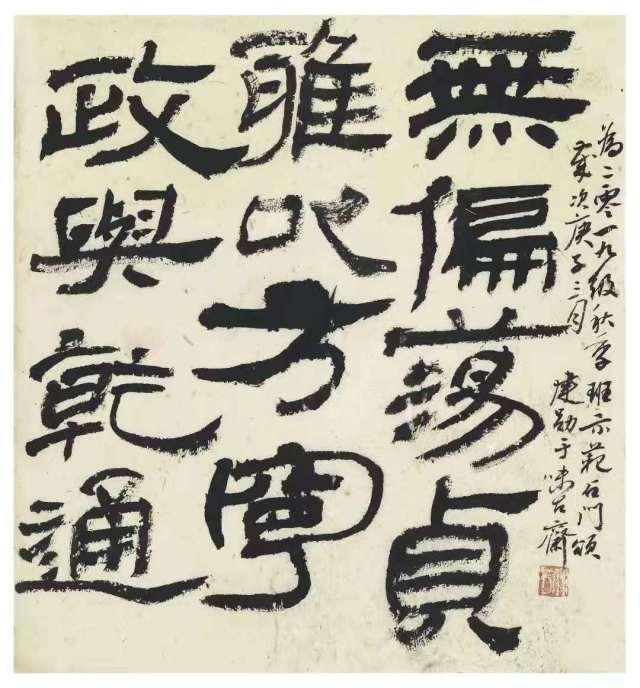 無偏蕩貞
雅以方寧
政與乾通
為二零一九級秋季班示範石門頌
歲次庚子三月 建勋于味古齋